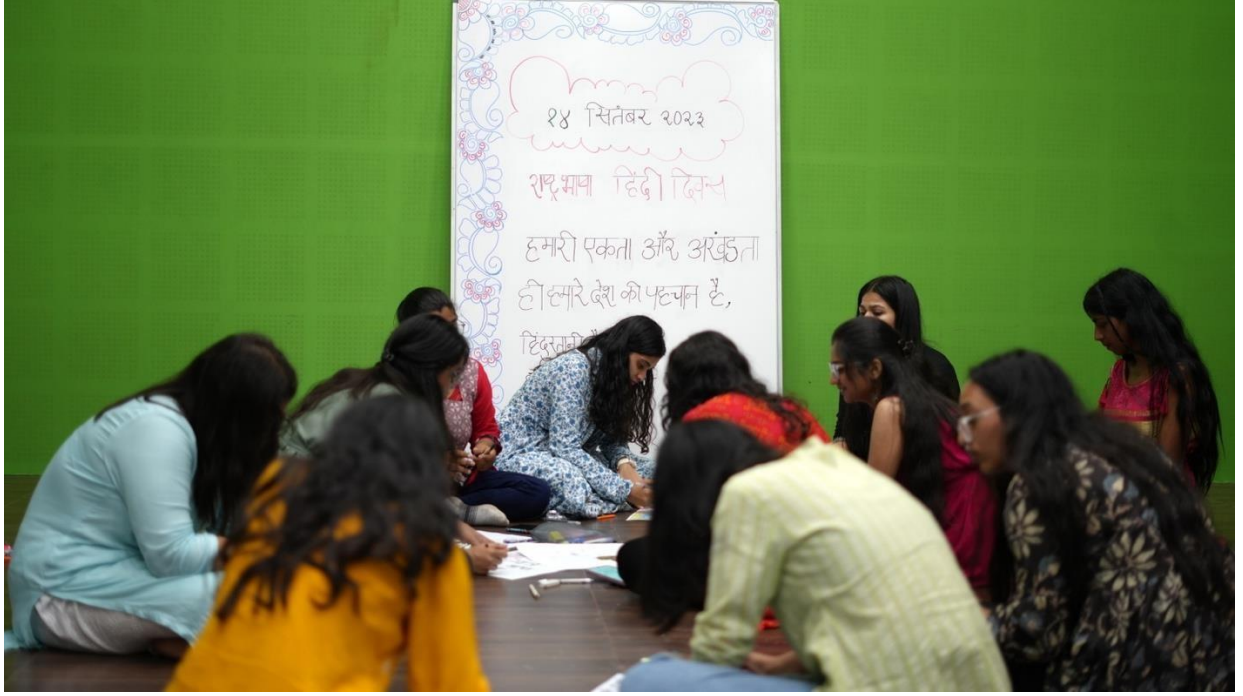 १४ सितंबर २०२३
राष्ट्रभाषा हिंदी दिवस
हमारी एकता और अखंडता
ही हमारे देश की पहचान है,
हिंदुस्तानी